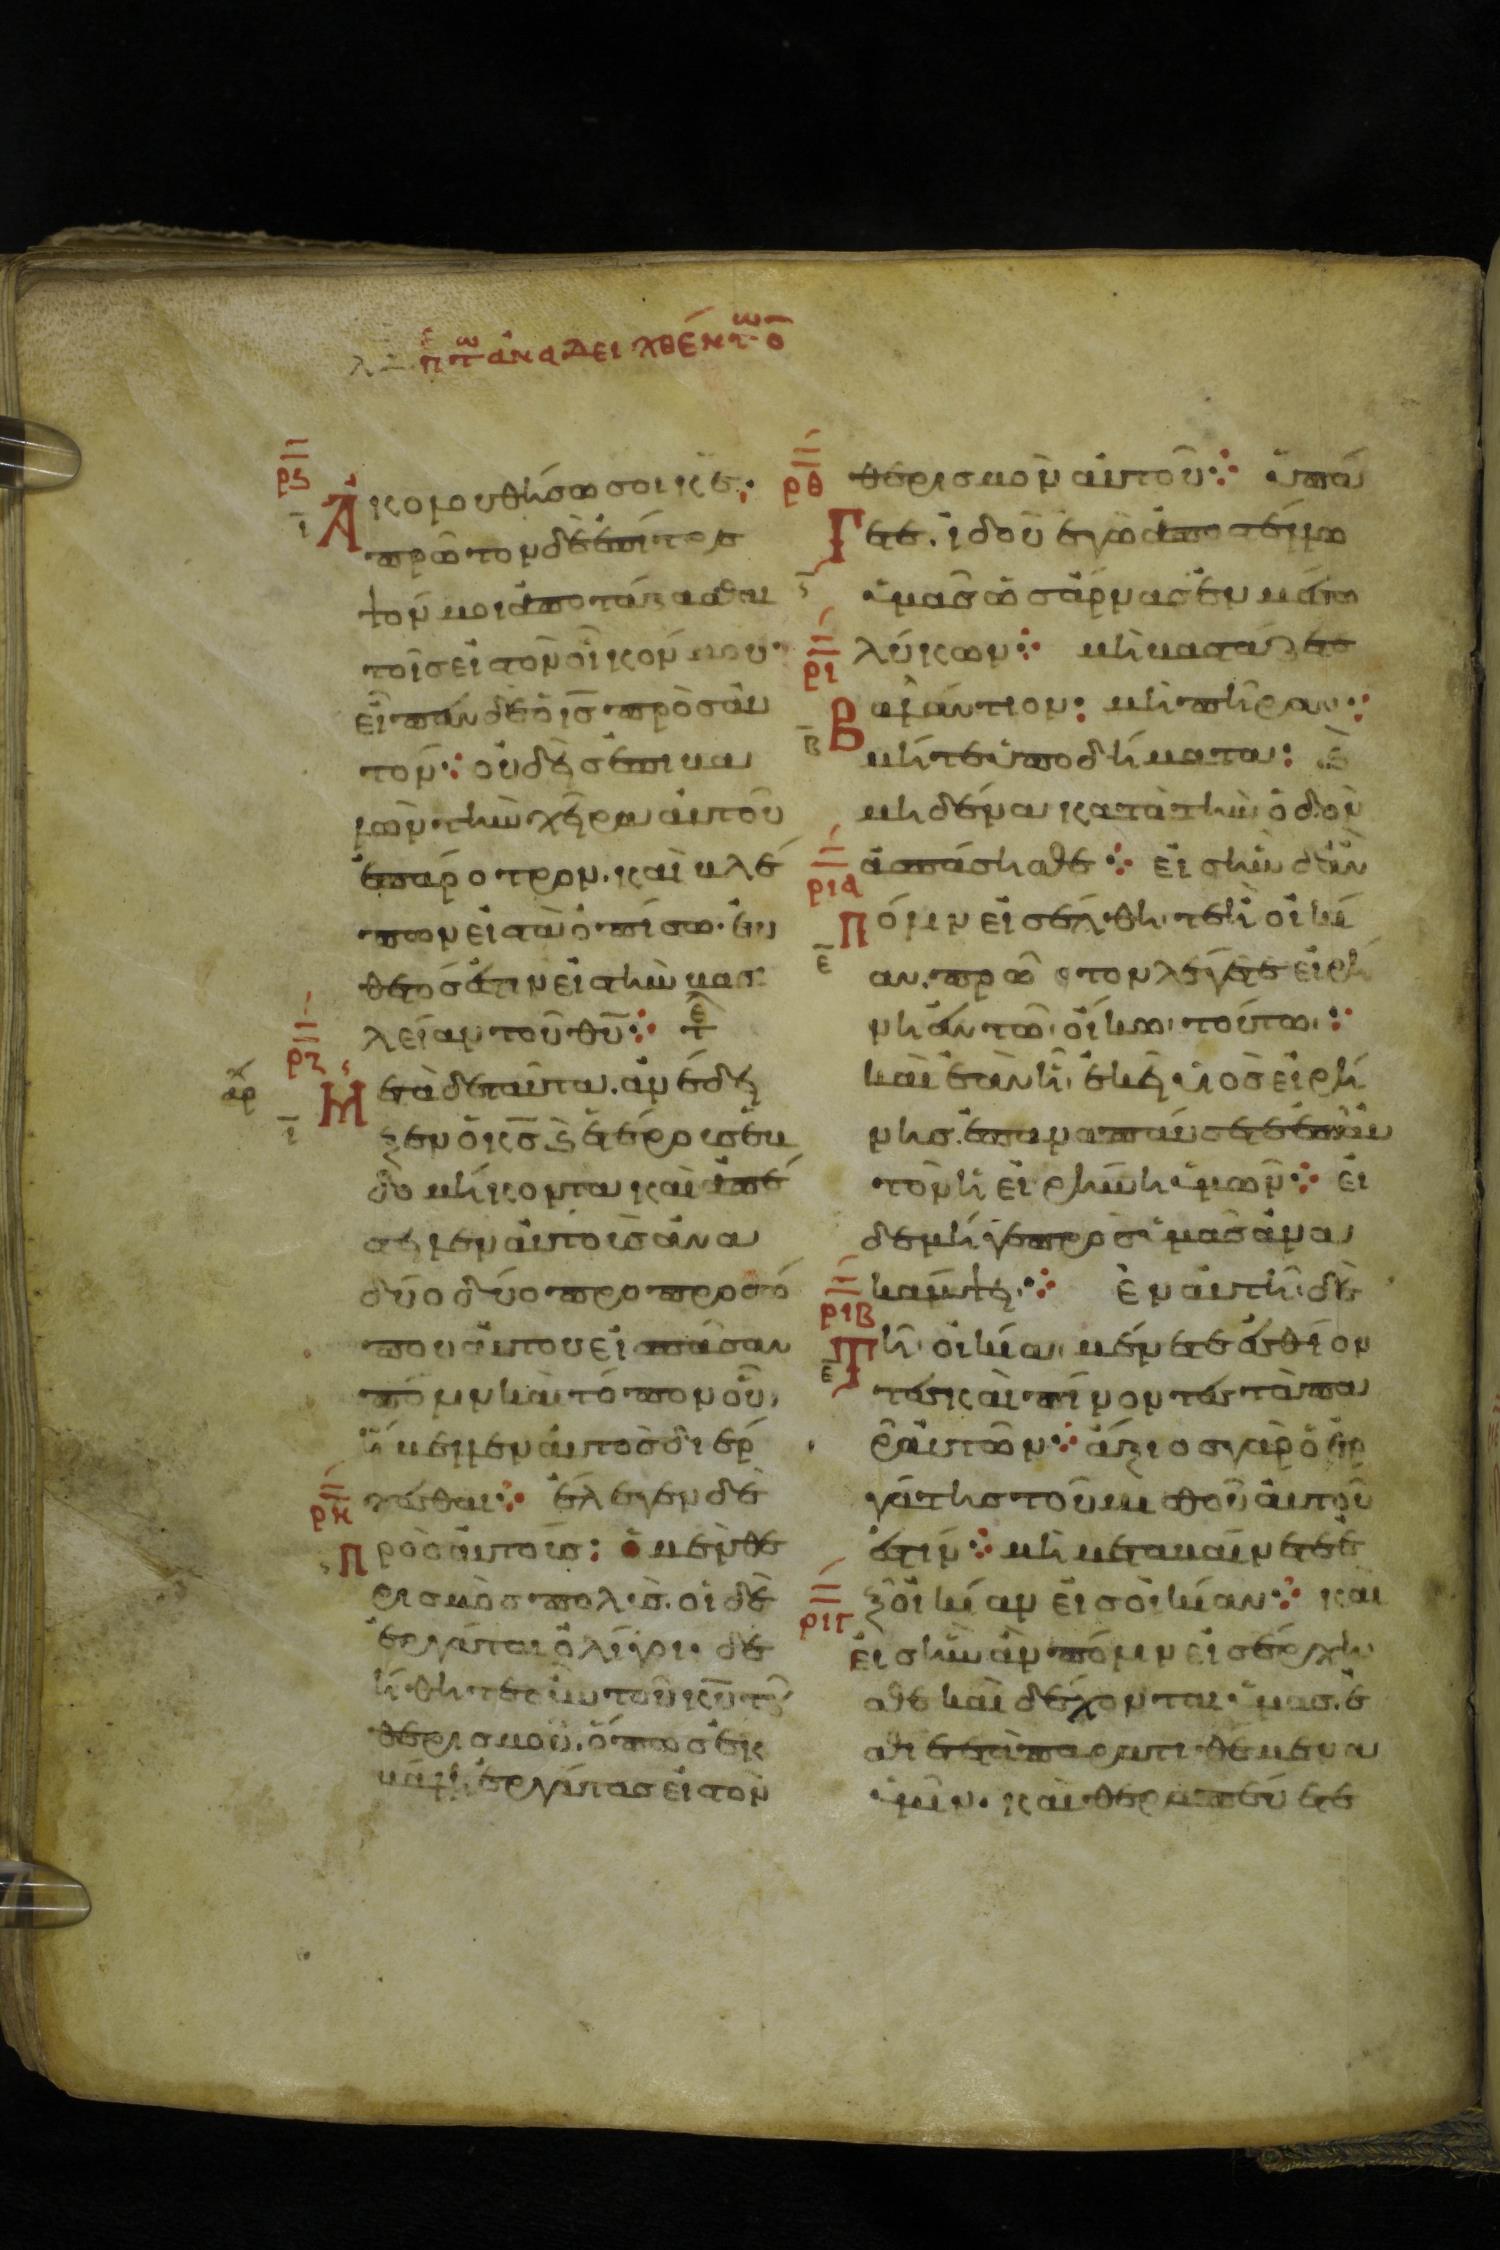 λδ πε τω αναδειχθέντω ο
ρϛ
Ἀκολουθήσω σοι κ̅ε̅·
ι
πρῶτον δὲ ἐπίτρε
ψόν μοι ἀποτάξασθαι
τοῖς εἰς τὸν οἶκόν μου·
εἶπεν δὲ ὁ ι̅ς̅ πρὸς αὐ
τόν· οὐδεὶς ἐπιβα
λὼν τὴν χεῖρα αὐτοῦ
ἐπ' ἄροτρον. καὶ βλέ
πων εἰς τὰ ὀπίσω. εὔ
θετός ἐστιν εἰς τὴν βασι
λείαν τοῦ θ̅υ̅· τε
ρζ
αρχ
Μετὰ δὲ ταῦτα. ἀνέδει
ι
ξεν ὁ κ̅ς̅ ἑτέρους ἑβ
δομήκοντα καὶ ἀπέ
στειλεν αὐτοὺς ἀνα
δύο δύο προ προσώ
που αὐτου εἰς πᾶσαν
πόλιν καὶ τόπον οὗ
ἤμελλεν αὐτὸς διέρ
ρη
χεσθαι· ἔλεγεν δὲ
Πρὸς αὐτούς· ὁ μὲν θε
ρισμὸς πολύς. οἱ δὲ
ἐργάται ὀλίγοι· δε
ήθητε οὖν τοῦ κ̅υ̅ τοῦ
θερισμοῦ. ὅπως ἐκ
βάλῃ ἐργάτας εἰς τὸν
ρθ
θερισμὸν αὐτοῦ· ὑπά
Γετε. ἰδοὺ ἐγὼ ἀποστέλλω
ϛ
ὑμᾶς ὡς ἄρνας ἐν μέσω
ρι
λύκων· μὴ βαστάζετε
Βαλάντιον· μὴ πήραν·
β
μήτε ὑποδήματα· καὶ
μηδένα κατὰ τὴν ὁδὸν
ρια
ἀσπάσησθε· εἰς ἣν δ' ἂν
Πόλιν εἰσέλθητε ἢ οἰκί
ε
αν. πρῶτον λέγετε εἰρή
νη ἐν τῶ οἴκω τούτω·
καὶ ἐὰν ἦ ἐκεῖ υἱὸς εἰρή
νης. ἐπαναπαύσετε ἐπ' αὐ
τὸν ἡ εἰρήνη ὑμῶν· εἰ
δε μήγε πρὸς ὑμᾶς ἀνα
ριβ
κάμψει· ἐν αὐτῆ δὲ
Τῆ οἰκία μένετε ἐσθίον
ε
τες καὶ πίνοντες τὰ πα
ρ' αὐτῶν· ἄξιος γὰρ ὁ ἐρ
γάτης τοῦ μισθοῦ αὐτοῦ
ἐστίν· μὴ μεταβαίνετε ἐ
ριγ
ξ οἰκίαν εἰς οἰκίαν· καὶ
εἰς ἣν ἂν πόλιν εἰσέρχη
σθε καὶ δέχονται ὑμᾶς. ἐ
σθίετε τὰ παρατιθέμενα
ὑμῖν. καὶ θεραπεύετε